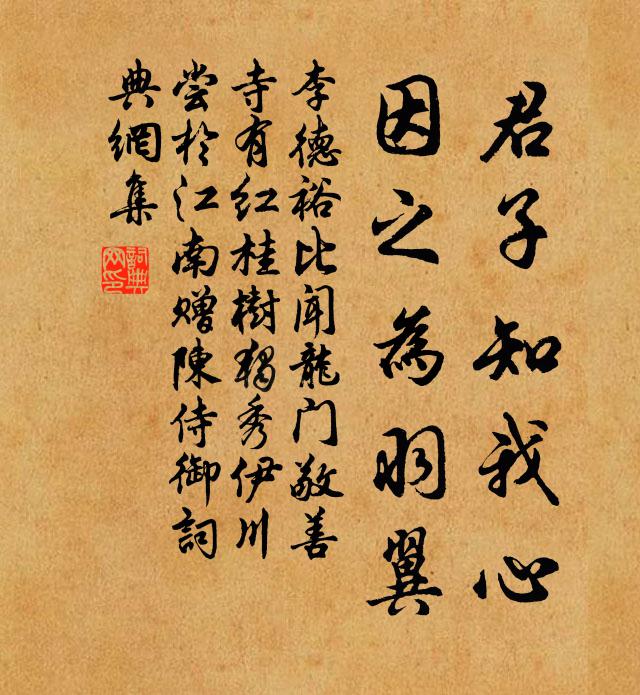 君子知我心
因之為羽翼
李德裕比闻龍门敬善
寺有红桂樹独秀伊川
尝於江南赠陳侍御詞
典網集
詞典
网印